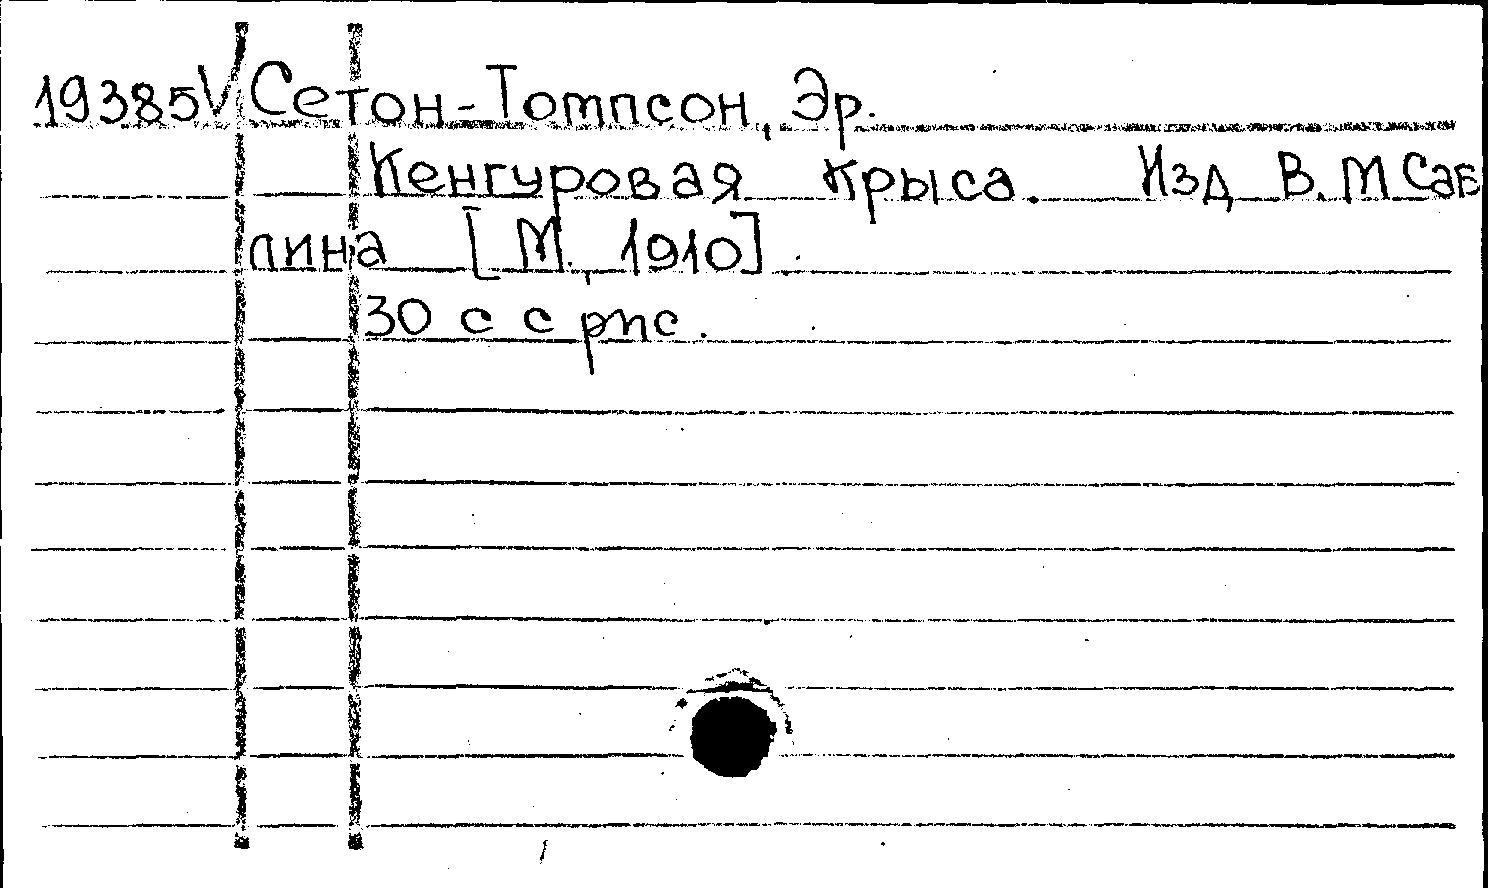 19385V Сетон-Томпсон, Эр.
Кенгуровая крыса. Изд В. М Саб
лина [М., 1910]
30 с с рис.